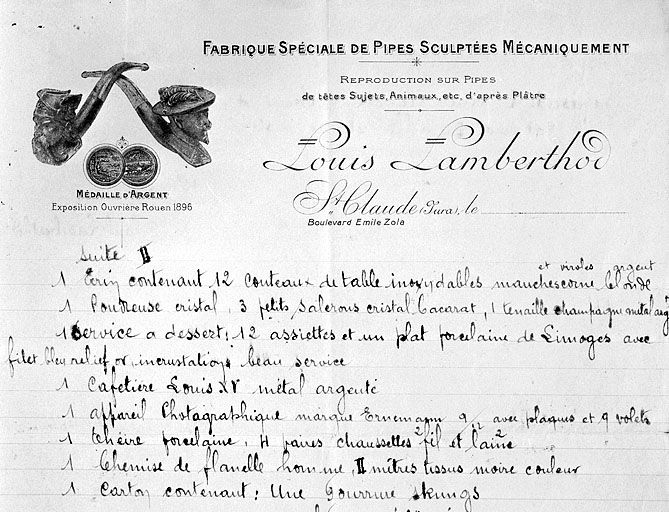 FABRIQUE SPÉCIALE DE PIPES SCULPTÉES MÉCANIQUEMENT
REPRODUCTION SUR PIPES
de têtes Sujets, Animaux, etc, d'après Plâtre
Louis Lamberthod
St Claude (Jura), le
Boulevard Emile Zola
MÉDAILLE D'ARGENT
Exposition Ouvrière Rouen 1896
Suite II
et viroles argent
1 Ecrin contenant 12 couteaux de table inoxydables manches corne blonde
1 Poudreuse cristal, 3 petits salerons cristal bacarat, 1 tenaille champagne metal arg
1 Service a dessert: 12 assiettes et un plat porcelaine de Limoges avec
filet bleu relief or, incrustations beau service
1 Cafetière Louis XV métal argenté
1 appareil Photagraphique marque Ernemann 9/12 avec plaques et 9 volets
1 théière porcelaine, 4 paires chaussettes 2 fil et 2 laine
1 Chemise de flanelle homme, II mètres tissus moire couleur
1 Carton contenant: Une gourrure skungs